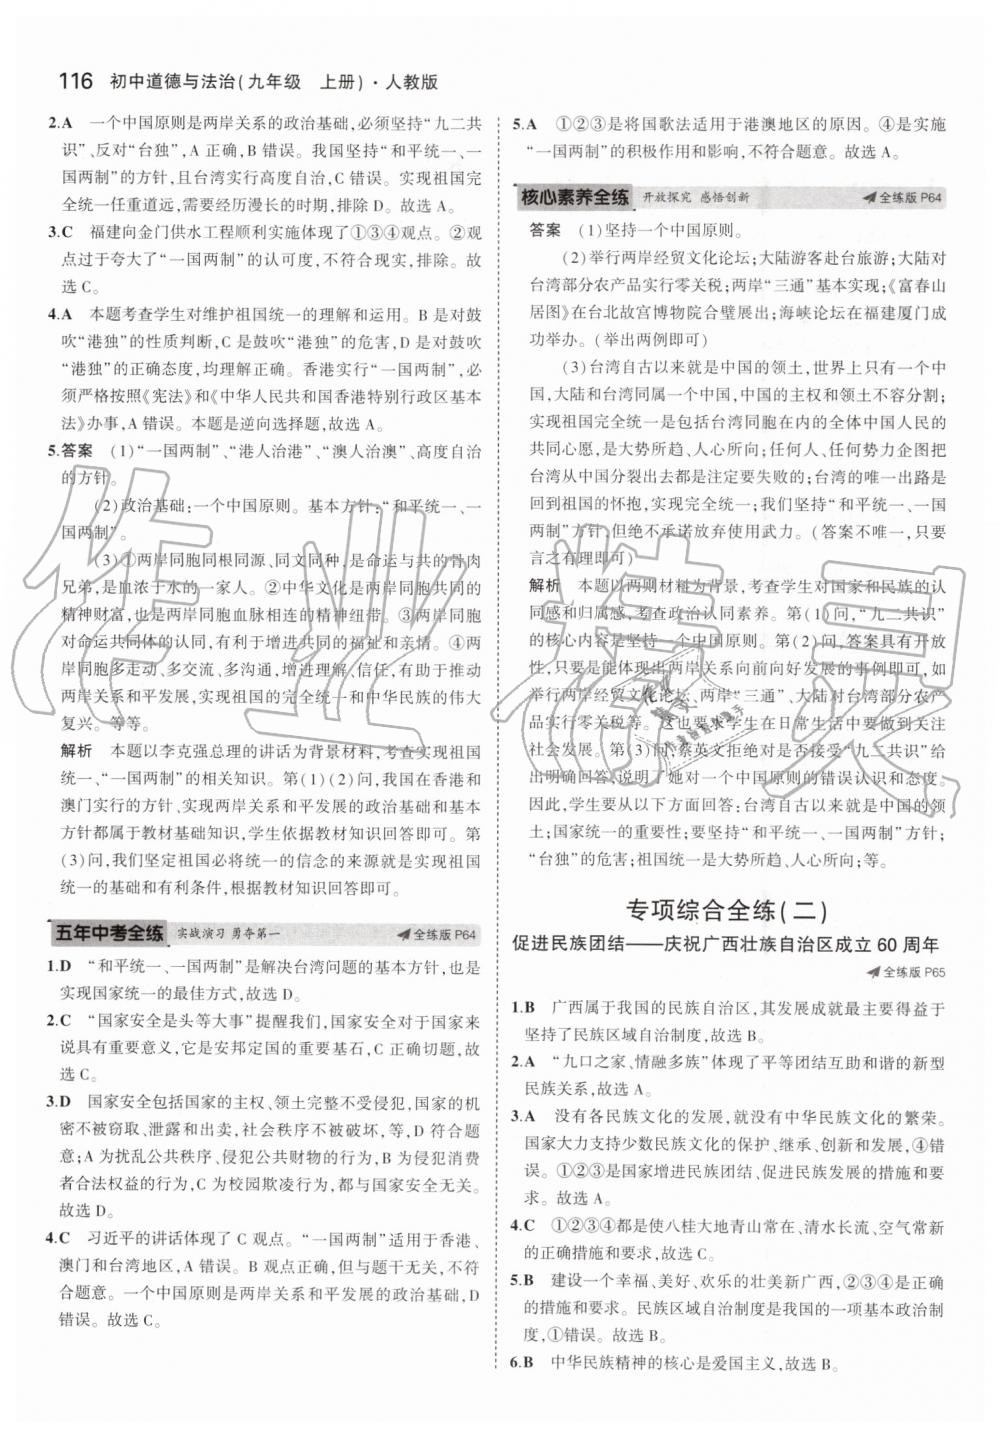 116 初中道德与法治(九年级　上册)·人教版
2.A　一个中国原则是两岸关系的政治基础,必须坚持“九二共
识”、反对“台独”,A 正确,B 错误。我国坚持“和平统一、一
国两制”的方针,且台湾实行高度自治,C 错误。实现祖国完
全统一任重道远,需要经历漫长的时期,排除 D。故选 A。
3.C　福建向金门供水工程顺利实施体现了①③④观点。②观
点过于夸大了“一国两制”的认可度,不符合现实,排除。故
选 C。
4.A　本题考查学生对维护祖国统一的理解和运用。B 是对鼓
吹“港独”的性质判断,C 是鼓吹“港独”的危害,D 是对鼓吹
“港独”的正确态度,均理解正确。香港实行“一国两制”,必
须严格按照《宪法》和《中华人民共和国香港特别行政区基本
法》办事,A 错误。本题是逆向选择题,故选 A。
5.答案　(1)“一国两制”、“港人治港”、“澳人治澳”、高度自治
的方针。
(2)政治基础:一个中国原则。基本方针:“和平统一、一
国两制”。
(3)①两岸同胞同根同源、同文同种,是命运与共的骨肉
兄弟,是血浓于水的一家人。②中华文化是两岸同胞共同的
精神财富,也是两岸同胞血脉相连的精神纽带。③两岸同胞
对命运共同体的认同,有利于增进共同的福祉和亲情。④两
岸同胞多走动、多交流、多沟通,增进理解、信任,有助于推动
两岸关系和平发展,实现祖国的完全统一和中华民族的伟大
复兴。等等。
解析　本题以李克强总理的讲话为背景材料,考查实现祖国
统一、“一国两制”的相关知识。第(1)(2)问,我国在香港和
澳门实行的方针、实现两岸关系和平发展的政治基础和基本
方针都属于教材基础知识,学生依据教材知识回答即可。第
(3)问,我们坚定祖国必将统一的信念的来源就是实现祖国
统一的基础和有利条件,根据教材知识回答即可。
五年中考全练 实战演习 勇夺第一 全练版 P64
1.D　“和平统一、一国两制”是解决台湾问题的基本方针,也是
实现国家统一的最佳方式,故选 D。
2.C　“国家安全是头等大事”提醒我们,国家安全对于国家来
说具有重要意义,它是安邦定国的重要基石,C 正确切题,故
选 C。
3.D　国家安全包括国家的主权、领土完整不受侵犯,国家的机
密不被窃取、泄露和出卖,社会秩序不被破坏,等,D 符合题
意;A 为扰乱公共秩序、侵犯公共财物的行为,B 为侵犯消费
者合法权益的行为,C 为校园欺凌行为,都与国家安全无关。
故选 D。
4.C　习近平的讲话体现了 C 观点。“一国两制”适用于香港、
澳门和台湾地区,A 错误。B 观点正确,但与题文无关,不符
合题意。一个中国原则是两岸关系和平发展的政治基础,D
错误。故选 C。
5.A　①②③是将国歌法适用于港澳地区的原因。④是实施
“一国两制”的积极作用和影响,不符合题意。故选 A。
核心素养全练 开放探究 感悟创新 全练版 P64
答案　(1)坚持一个中国原则。
(2)举行两岸经贸文化论坛;大陆游客赴台旅游;大陆对
台湾部分农产品实行零关税;两岸“三通”基本实现;《富春山
居图》在台北故宫博物院合璧展出;海峡论坛在福建厦门成
功举办。(举出两例即可)
(3)台湾自古以来就是中国的领土,世界上只有一个中
国,大陆和台湾同属一个中国,中国的主权和领土不容分割;
实现祖国完全统一是包括台湾同胞在内的全体中国人民的
共同心愿,是大势所趋、人心所向;任何人、任何势力企图把
台湾从中国分裂出去都是注定要失败的;台湾的唯一出路是
回到祖国的怀抱,实现完全统一;我们坚持“和平统一、一国
两制”方针,但绝不承诺放弃使用武力。(答案不唯一,只要
言之有理即可)
解析　本题以两则材料为背景,考查学生对国家和民族的认
同感和归属感,考查政治认同素养。第(1)问,“九二共识”
的核心内容是坚持一个中国原则。第(2)问,答案具有开放
性,只要是能体现出两岸关系向前向好发展的事例即可,如
举行两岸经贸文化论坛、两岸“三通”、大陆对台湾部分农产
品实行零关税等。这也要求学生在日常生活中要做到关注
社会发展。第(3)问,蔡英文拒绝对是否接受“九二共识”给
出明确回答,说明了她对一个中国原则的错误认识和态度。
因此,学生要从以下方面回答:台湾自古以来就是中国的领
土;国家统一的重要性;要坚持“和平统一、一国两制”方针;
“台独”的危害;祖国统一是大势所趋、人心所向;等。
专项综合全练(二)
促进民族团结——庆祝广西壮族自治区成立 60 周年
全练版 P65
1.B　广西属于我国的民族自治区,其发展成就最主要得益于
坚持了民族区域自治制度,故选 B。
2.A　“九口之家、情融多族”体现了平等团结互助和谐的新型
民族关系,故选 A。
3.A　没有各民族文化的发展,就没有中华民族文化的繁荣。
国家大力支持少数民族文化的保护、继承、创新和发展,④错
误。①②③是国家增进民族团结、促进民族发展的措施和要
求。故选 A。
4.C　①②③④都是使八桂大地青山常在、清水长流、空气常新
的正确措施和要求,故选 C。
5.B　建设一个幸福、美好、欢乐的壮美新广西,②③④是正确
的措施和要求。民族区域自治制度是我国的一项基本政治制
度,①错误。故选 B。
6.B　中华民族精神的核心是爱国主义,故选 B。
作业精灵